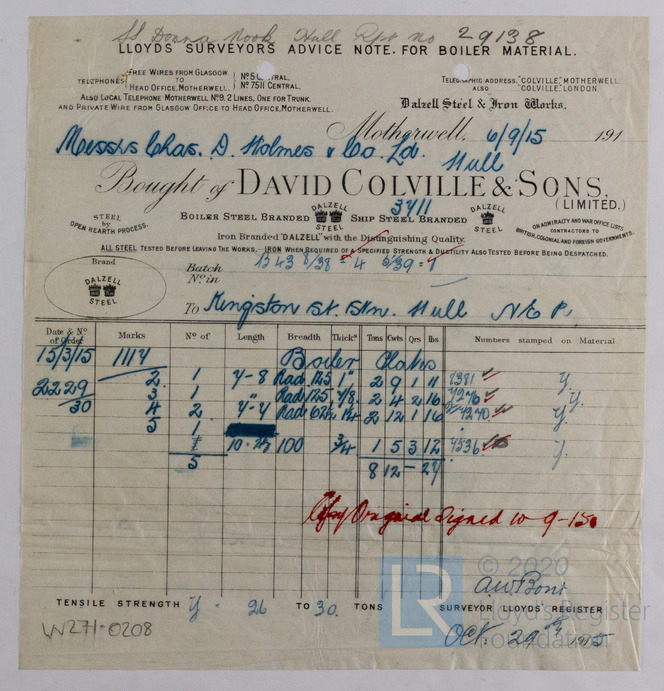 SS Donna Nook Hull Rpt no 29138
LLOYDS SURVEYORS ADVICE NOTE. FOR BOILER MATERIAL.
TELEPHONES FREE WIRES FROM GLASGOW TO HEAD OFFICE, MOTHERWELL. No 5 CENTRAL, No 7511 CENTRAL.
ALSO LOCAL TELEPHONE MOTHERWELL No 9. 2 LINES, ONE FOR TRUNK.
AND PRIVATE WIRE FROM GLASGOW OFFICE TO HEAD OFFICE, MOTHERWELL.
TELEGRAPHIC ADDRESS, "COLVILLE", MOTHERWELL.
ALSO "COLVILLE", LONDON.
Dalzell Steel & Iron Works.
Motherwell, 6/9/15 191
Messrs Chas. D. Holmes & Co. Ld. Hull
Bought of DAVID COLVILLE & SONS,
(LIMITED.)
3411
STEEL by OPEN HEARTH PROCESS.
BOILER STEEL BRANDED DALZELL STEEL SHIP STEEL BRANDED DALZELL STEEL
ON ADMIRALTY AND WAR OFFICE LISTS CONTRACTORS TO BRITISH, COLONIAL AND FOREIGN GOVERNMENTS.
Iron Branded "DALZELL" with the Distinguishing Quality.
ALL STEEL TESTED BEFORE LEAVING THE WORKS. IRON WHEN REQUIRED OF A SPECIFIED STRENGTH & DUCTILITY ALSO TESTED BEFORE BEING DESPATCHED.
Brand
DALZELL STEEL
Batch No. in B43 8/38 = 4 6/39 = 1
To Kingston St. Stn. Hull N E R.
Date & No of Order Marks No of Length Breadth Thick" Tons Cwts Qrs lbs Numbers stamped on Material
15/3/15 1114 Boiler Plates
2 1 4-8 Rad 125 1" 2 9 1 11 4381 Y.
2229 3 1 " Rad 125 7/8 2 4 2 16 Y.
30 4 2 4-4 Rad 2 12 1 16 4240 Y.
5 1
10 100 3/4 1 5 3 12 4536 Y.
5 8 12 - 27
Original Signed 10-9-15
© 2020
Lloyd's Register
Foundation
LR
A.W. Bont
TENSILE STRENGTH Y - 26 TO 30. TONS SURVEYOR LLOYDS' REGISTER
W271-0208
Oct. 29th 1915